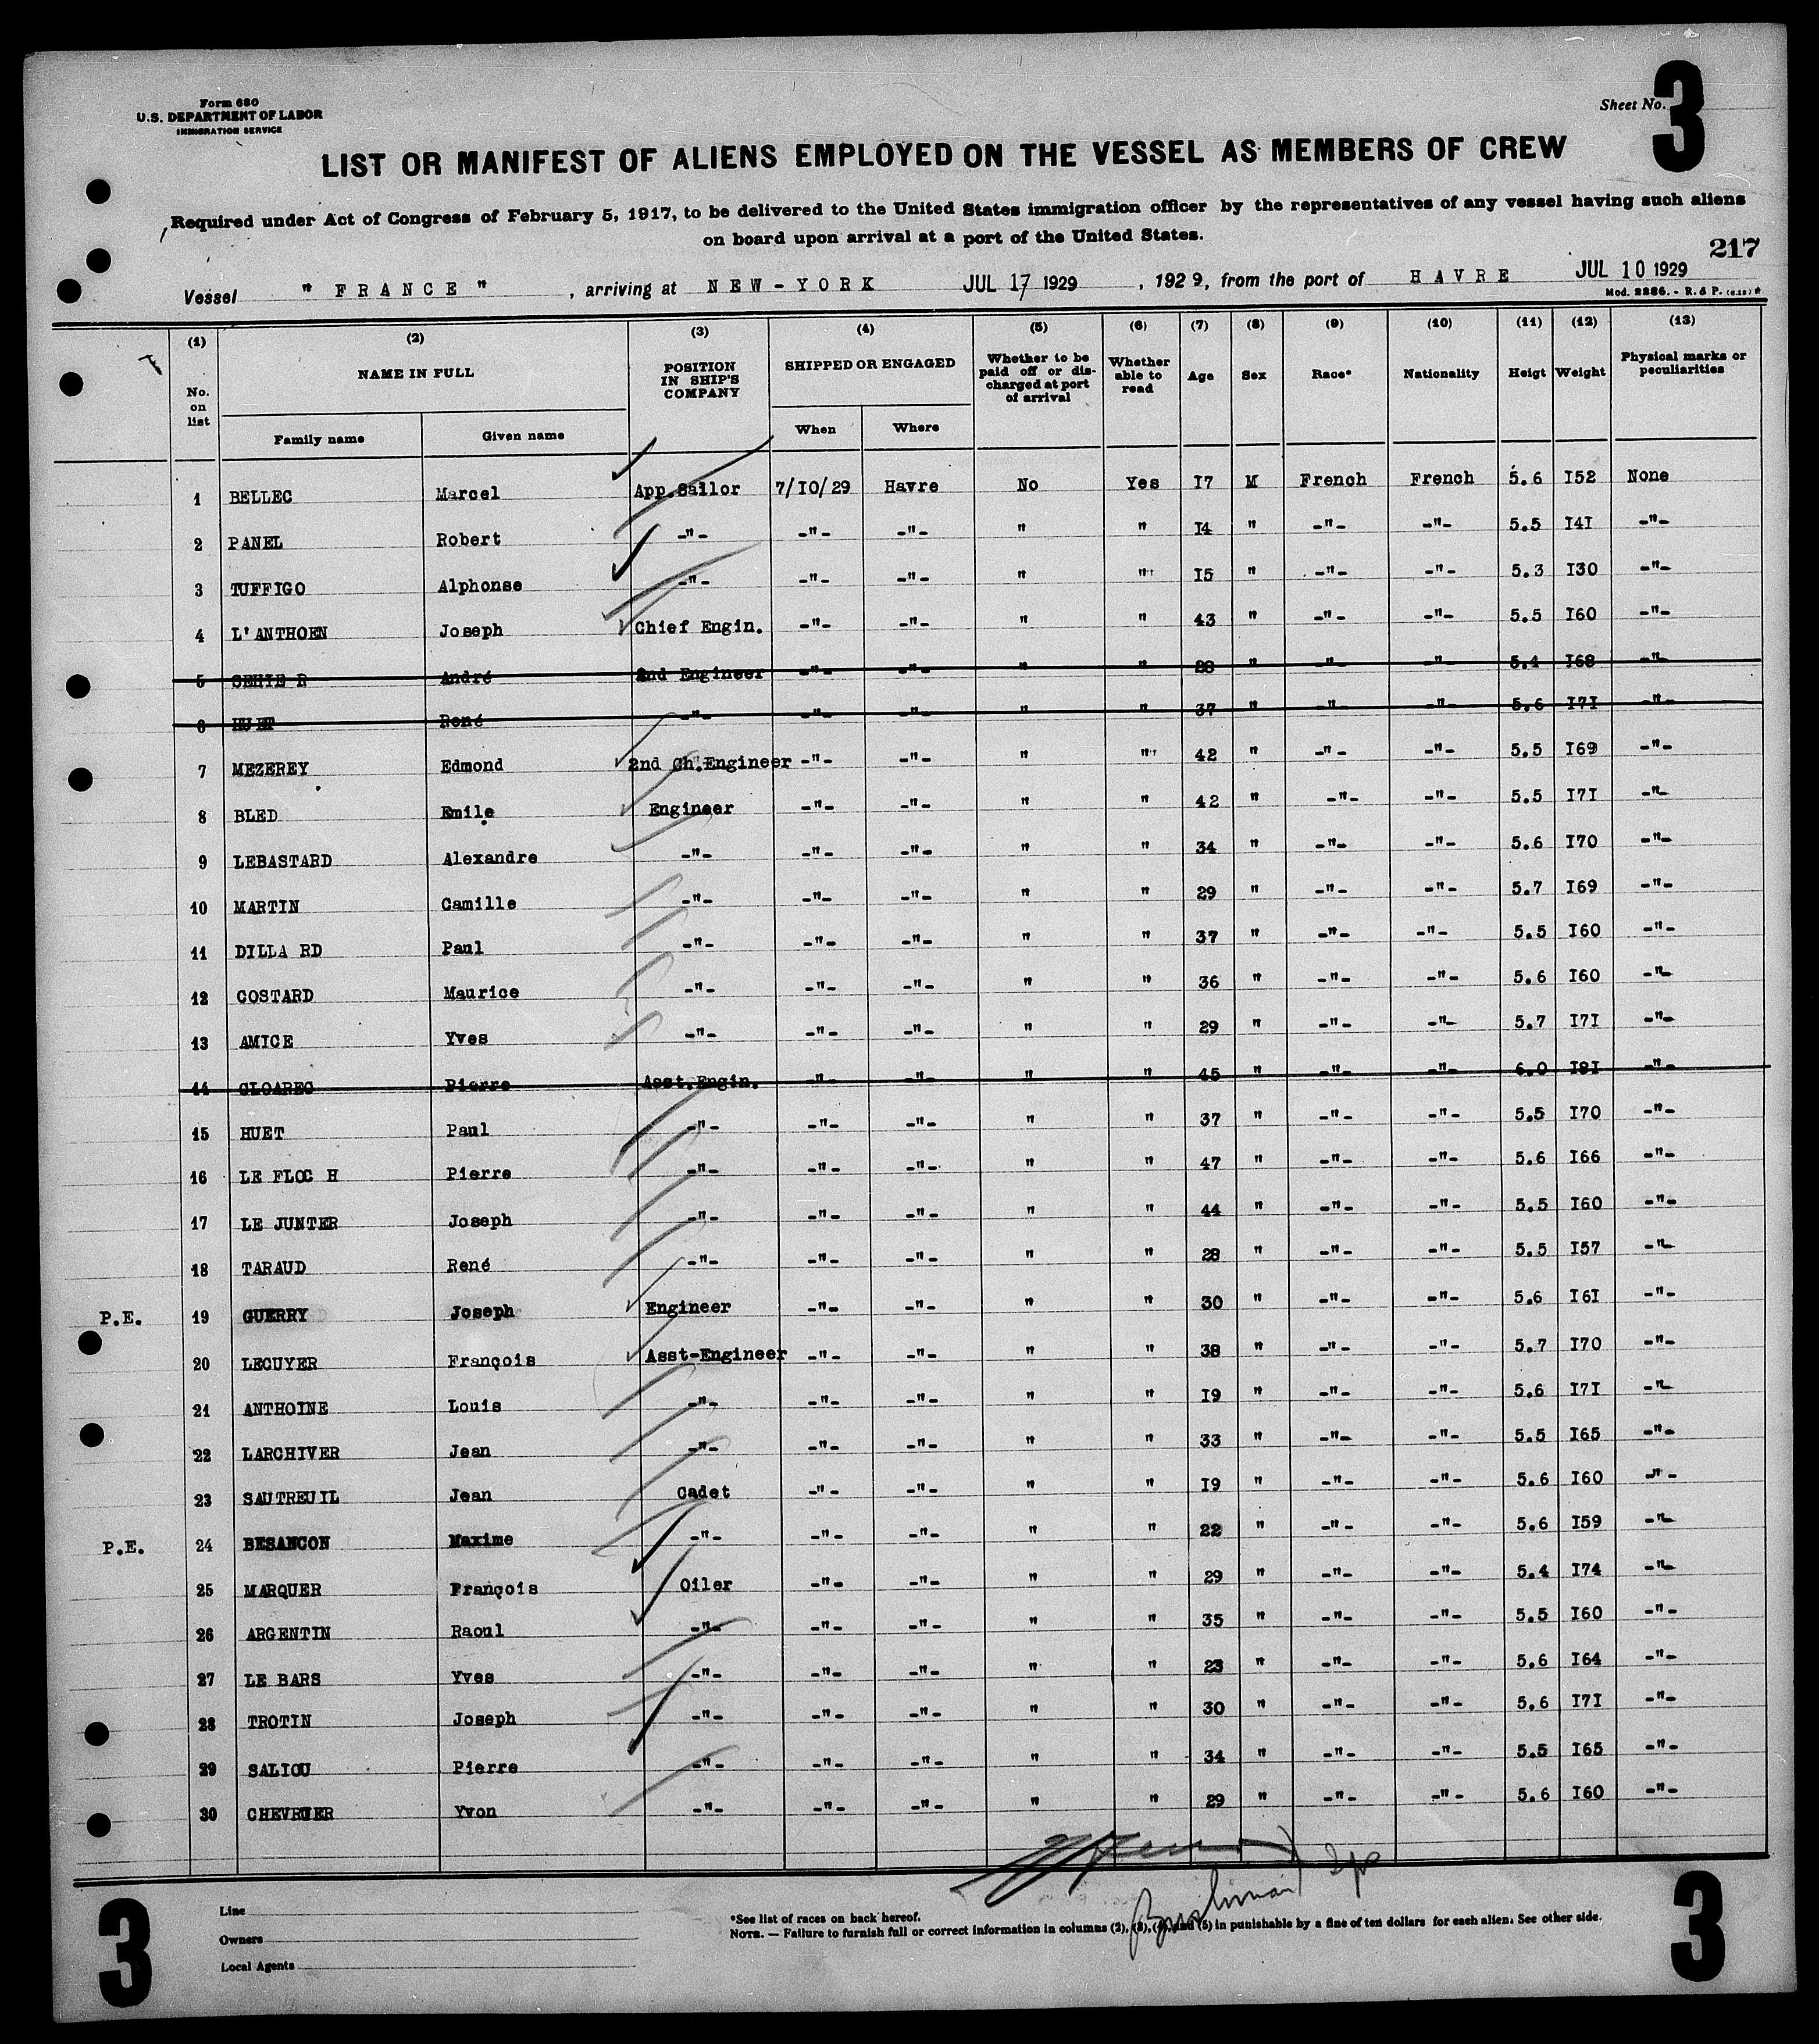 Form 680
U.S. DEPARTMENT OF LABOR
IMMIGRATION SERVICE
Sheet No. 3
LIST OR MANIFEST OF ALIENS EMPLOYED ON THE VESSEL AS MEMBERS OF CREW
Required under Act of Congress of February 5, 1917, to be delivered to the United States immigration officer by the representatives of any vessel having such aliens
on board upon arrival at a port of the United States.
217
Vessel " FRANCE " , arriving at NEW-YORK JUL 17 1929 , 1929, from the port of HAVRE JUL 10 1929
Mod. 2286. - R. & P.
(1) (2) (3) (4) (5) (6) (7) (8) (9) (10) (11) (12) (13)
No. on list NAME IN FULL POSITION IN SHIP'S COMPANY SHIPPED OR ENGAGED Whether to be paid off or discharged at port of arrival Whether able to read Age Sex Race* Nationality Heigt Weight Physical marks or peculiarities
Family name Given name When Where
1 BELLEC Marcel App.Sailor 7/I0/29 Havre No Yes I7 M French French 5.6 I52 None
2 PANEL Robert -"- -"- -"- " " I4 " -"- -"- 5.5 I4I -"-
3 TUFFIGO Alphonse -"- -"- -"- " " I5 " -"- -"- 5.3 I30 -"-
4 L'ANTHOEN Joseph Chief Engin. -"- -"- " " 43 " -"- -"- 5.5 I60 -"-
5 André 2nd Engineer -"- -"- " " " -"- -"- 5.4 I68 -"-
6 HUET René -"- -"- -"- " " 37 " -"- -"- 5.6 I7I -"-
7 MEZEREY Edmond 2nd Ch.Engineer -"- -"- " " 42 " -"- -"- 5.5 I69 -"-
8 BLED Emile Engineer -"- -"- " " 42 " -"- -"- 5.5 I7I -"-
9 LEBASTARD Alexandre -"- -"- -"- " " 34 " -"- -"- 5.6 I70 -"-
10 MARTIN Camille -"- -"- -"- " " 29 " -"- -"- 5.7 I69 -"-
11 DILLA RD Paul -"- -"- -"- " " 37 " -"- -"- 5.5 I60 -"-
12 COSTARD Maurice -"- -"- -"- " " 36 " -"- -"- 5.6 I60 -"-
13 AMICE Yves -"- -"- -"- " " 29 " -"- -"- 5.7 I7I -"-
14 CLOAREC Pierre Asst.Engin. -"- -"- " " 45 " -"- -"- 6.0 I8I -"-
15 HUET Paul -"- -"- -"- " " 37 " -"- -"- 5.5 I70 -"-
16 LE FLOC H Pierre -"- -"- -"- " " 47 " -"- -"- 5.6 I66 -"-
17 LE JUNTER Joseph -"- -"- -"- " " 44 " -"- -"- 5.5 I60 -"-
18 TARAUD René -"- -"- -"- " " 28 " -"- -"- 5.5 I57 -"-
P.E. 19 GUERRY Joseph Engineer -"- -"- " " 30 " -"- -"- 5.6 I6I -"-
20 LECUYER François Asst-Engineer -"- -"- " " 38 " -"- -"- 5.7 I70 -"-
21 ANTHOINE Louis -"- -"- -"- " " I9 " -"- -"- 5.6 I7I -"-
22 LARCHIVER Jean -"- -"- -"- " " 33 " -"- -"- 5.5 I65 -"-
23 SAUTREUIL Jean Cadet -"- -"- " " I9 " -"- -"- 5.6 I60 -"-
P.E. 24 BESANCON Maxime -"- -"- -"- " " 22 " -"- -"- 5.6 I59 -"-
25 MARQUER François Oiler -"- -"- " " 29 " -"- -"- 5.4 I74 -"-
26 ARGENTIN Raoul -"- -"- -"- " " 35 " -"- -"- 5.5 I60 -"-
27 LE BARS Yves -"- -"- -"- " " 23 " -"- -"- 5.6 I64 -"-
28 TROTIN Joseph -"- -"- -"- " " 30 " -"- -"- 5.6 I7I -"-
29 SALIOU Pierre -"- -"- -"- " " 34 " -"- -"- 5.5 I65 -"-
30 CHEVRIER Yvon -"- -"- -"- " " 29 " -"- -"- 5.6 I60 -"-
3
3
Line
Owners
Local Agents
*See list of races on back hereof.
NOTE. — Failure to furnish full or correct information in columns (2), (3), (4) and (5) in punishable by a fine of ten dollars for each alien. See other side.